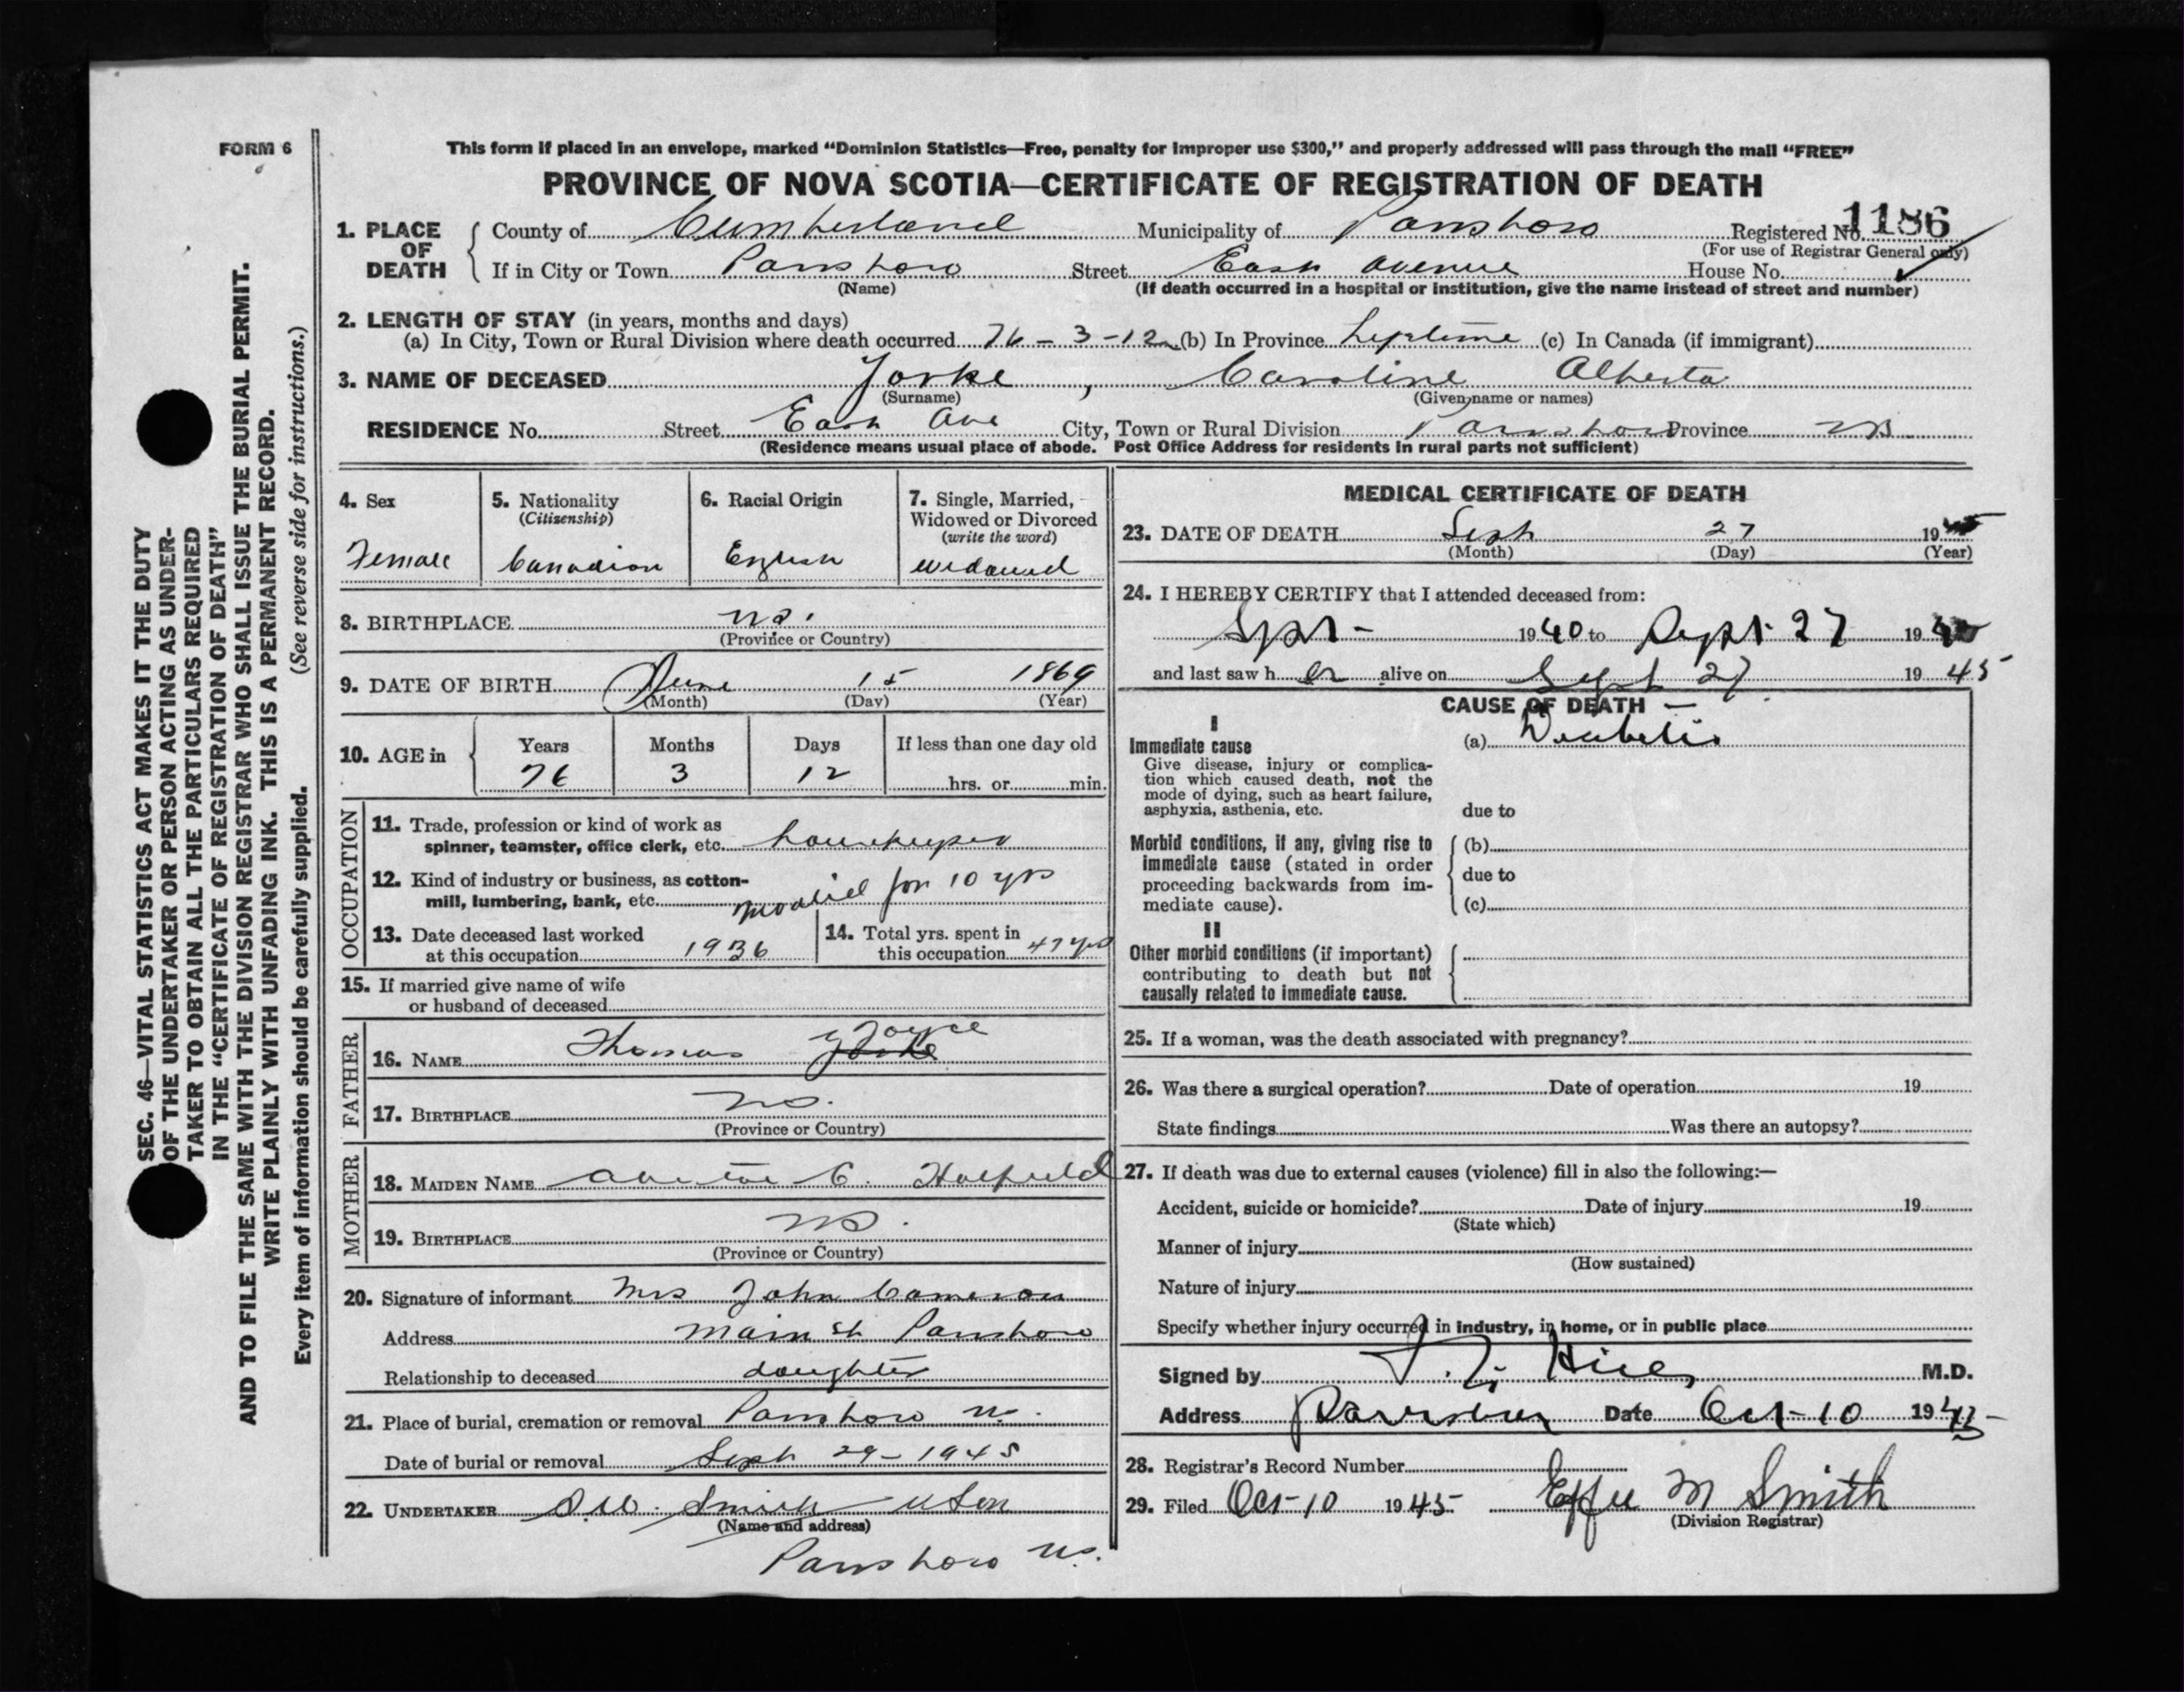 FORM 6
This form if placed in an envelope, marked "Dominion Statistics—Free, penalty for improper use $300," and properly addressed will pass through the mail "FREE"
PROVINCE OF NOVA SCOTIA—CERTIFICATE OF REGISTRATION OF DEATH
1. PLACE OF DEATH County of Cumberland Municipality of Parrsboro Registered No. 1186
(For use of Registrar General only)
If in City or Town Parrsboro Street East Avenue House No.
(Name) (If death occurred in a hospital or institution, give the name instead of street and number)
2. LENGTH OF STAY (in years, months and days)
(a) In City, Town or Rural Division where death occurred 76 - 3 - 12 (b) In Province Lifetime (c) In Canada (if immigrant)
3. NAME OF DECEASED Yorke , Caroline Alberta
(Surname) (Given name or names)
RESIDENCE No. Street East Ave City, Town or Rural Division Parrsboro Province NS
(Residence means usual place of abode. Post Office Address for residents in rural parts not sufficient)
4. Sex
Female
5. Nationality
(Citizenship)
Canadian
6. Racial Origin
English
7. Single, Married,
Widowed or Divorced
(write the word)
widowed
8. BIRTHPLACE NS.
(Province or Country)
9. DATE OF BIRTH June 15 1869
(Month) (Day) (Year)
10. AGE in Years Months Days If less than one day old
76 3 12 hrs. or min.
OCCUPATION
11. Trade, profession or kind of work as
spinner, teamster, office clerk, etc. housekeeper
12. Kind of industry or business, as cotton-
mill, lumbering, bank, etc. for 10 yrs
13. Date deceased last worked
at this occupation 1936
14. Total yrs. spent in
this occupation 47 yrs
15. If married give name of wife
or husband of deceased
FATHER
16. NAME Thomas Yorke
17. BIRTHPLACE NS.
(Province or Country)
MOTHER
18. MAIDEN NAME C. Hatfield
19. BIRTHPLACE NS.
(Province or Country)
20. Signature of informant Mrs John Cameron
Address Main St Parrsboro
Relationship to deceased daughter
21. Place of burial, cremation or removal Parrsboro NS.
Date of burial or removal Sept 29 - 1945
22. UNDERTAKER Smith & Son
(Name and address)
Parrsboro NS.
MEDICAL CERTIFICATE OF DEATH
23. DATE OF DEATH Sept 27 1945
(Month) (Day) (Year)
24. I HEREBY CERTIFY that I attended deceased from:
Sept - 1940 to Sept. 27 1945
and last saw her alive on Sept 27 1945
CAUSE OF DEATH —
I
Immediate cause
Give disease, injury or complica-
tion which caused death, not the
mode of dying, such as heart failure,
asphyxia, asthenia, etc.
(a) Diabetis
due to
Morbid conditions, if any, giving rise to
immediate cause (stated in order
proceeding backwards from im-
mediate cause).
(b)
due to
(c)
II
Other morbid conditions (if important)
contributing to death but not
causally related to immediate cause.
25. If a woman, was the death associated with pregnancy?
26. Was there a surgical operation? Date of operation 19
State findings Was there an autopsy?
27. If death was due to external causes (violence) fill in also the following:—
Accident, suicide or homicide? Date of injury 19
(State which)
Manner of injury
(How sustained)
Nature of injury
Specify whether injury occurred in industry, in home, or in public place
Signed by Hill M.D.
Address Parrsboro Date Oct-10 1945
28. Registrar's Record Number
29. Filed Oct-10 1945 Effie M Smith
(Division Registrar)
SEC. 46—VITAL STATISTICS ACT MAKES IT THE DUTY
OF THE UNDERTAKER OR PERSON ACTING AS UNDER-
TAKER TO OBTAIN ALL THE PARTICULARS REQUIRED
IN THE "CERTIFICATE OF REGISTRATION OF DEATH"
AND TO FILE THE SAME WITH THE DIVISION REGISTRAR WHO SHALL ISSUE THE BURIAL PERMIT.
WRITE PLAINLY WITH UNFADING INK. THIS IS A PERMANENT RECORD.
Every item of information should be carefully supplied. (See reverse side for instructions.)